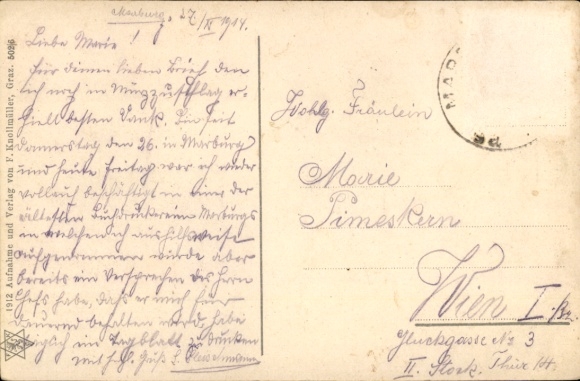 Marburg, 27/XI 1914.
Liebe Marie!
Für deinen lieben Brief den
ich noch in Mürzzuschlag er-
hielt besten Dank. Bin seit
Donnerstag den 26. in Marburg
und heute Freitag war ich wieder
vollauf beschäftigt in einer der
ältesten Buchdruckereien Marburgs
in welche ich aushilfsweise
aufgenommen wurde aber
bereits ein Versprechen des Herrn
Chefs habe, daß er mich für
dauernd behalten wird, habe
im Tagblatt zu drucken
mit hzl. Gruß
1912 Aufnahme und Verlag von F. Knollmüller, Graz. 5026
MAR
Wohlg. Fräulein
Marie
Pimeskern
Wien I. Bz.
Gluckgasse No 3
II. Stock. Thür 14.